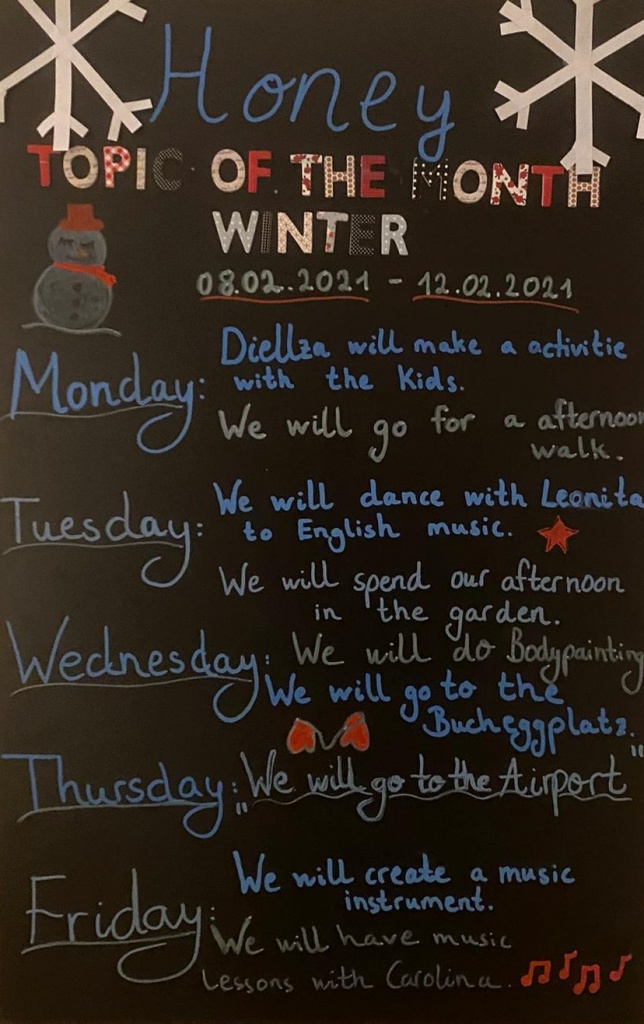 Honey
TOPIC OF THE MONTH
WINTER
08.02.2021 - 12.02.2021
Monday: Diellza will make a activitie
with the Kids.
We will go for a afternoon
walk.
Tuesday: We will dance with Leonita
to English music.
We will spend our afternoon
in the garden.
Wednesday: We will do Bodypainting
We will go to the
Bucheggplatz.
Thursday: "We will go to the Airport"
Friday: We will create a music
instrument.
We will have music
Lessons with Carolina.